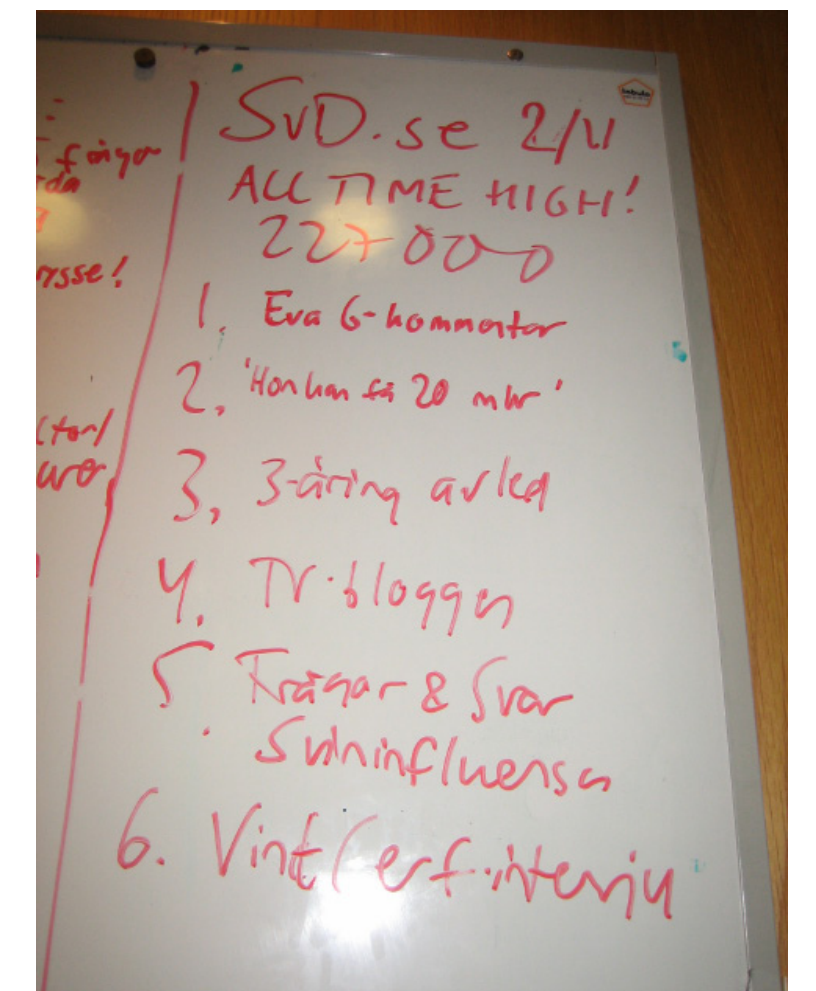 frågor
rda
rsse!
SvD.se 2/11
ALL TIME HIGH!
227000
1. Eva G-kommentar
2, 'Hon kan få 20 mkr'
3, 3-åring avled
4. TV-bloggen
5. Frågor & Svar
Svininfluensa
6. Vint Cerf-intervju